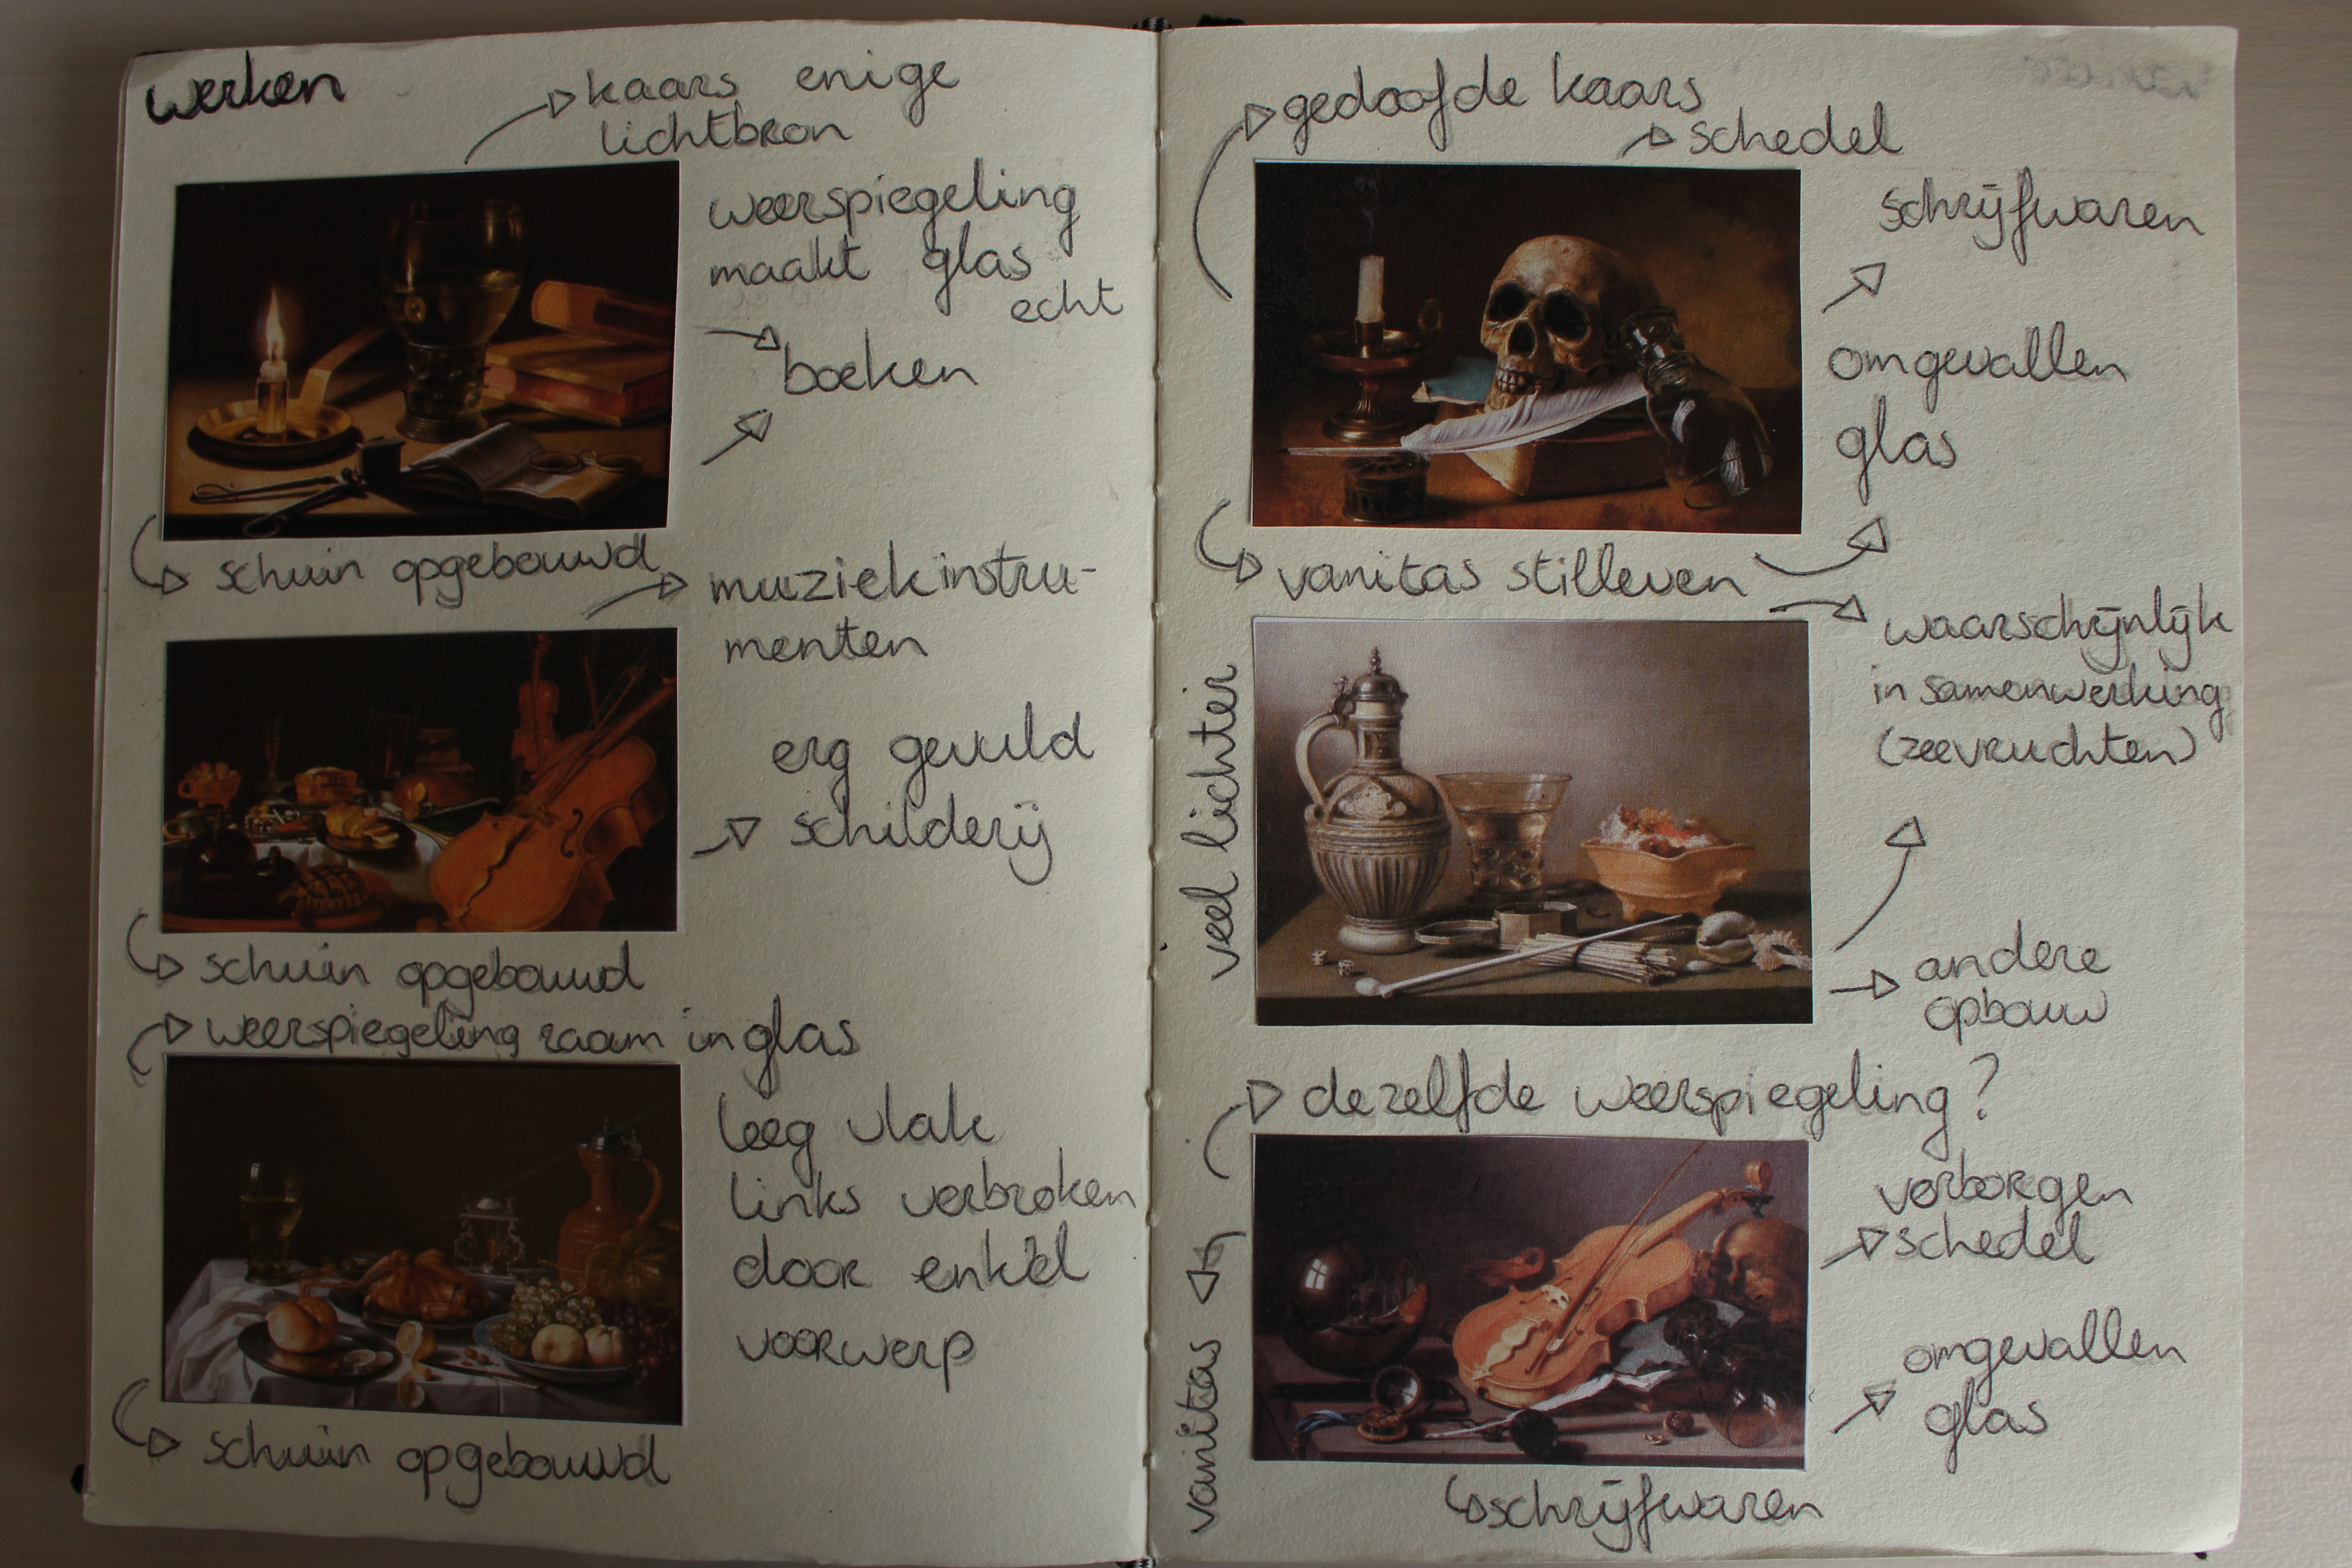 werken
kaars enige
lichtbron
weerspiegeling
maakt glas
echt
boeken
schuin opgebouwd
muziekinstru-
menten
erg gevuld
schilderij
schuin opgebouwd
weerspiegeling raam in glas
leeg vlak
links verbroken
door enkel
voorwerp
schuin opgebouwd
gedoofde kaars
schedel
schrijfwaren
omgevallen
glas
vanitas stilleven
waarschijnlijk
in samenwerking
(zeevruchten)
veel lichter
andere
opbouw
dezelfde weerspiegeling?
verborgen
schedel
omgevallen
glas
vanitas
schrijfwaren